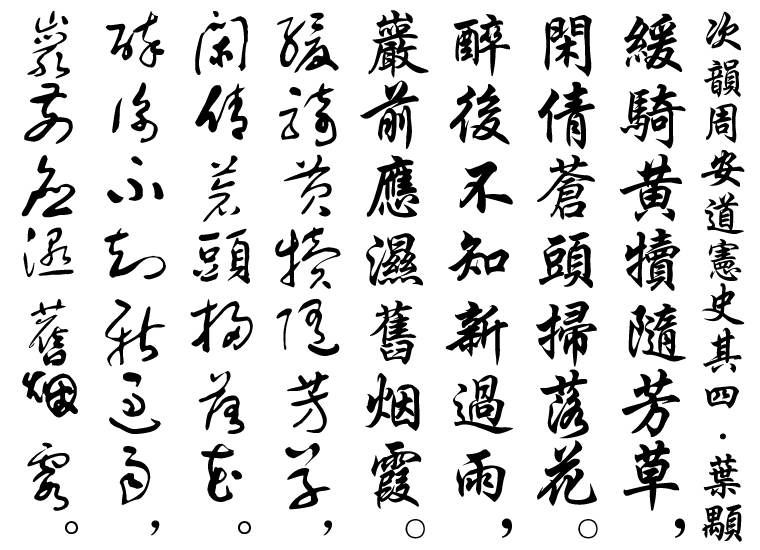 次韻周安道憲史其四·葉顒
緩騎黃犢隨芳草，
閑倩蒼頭掃落花。
醉後不知新過雨，
巖前應濕舊烟霞。
緩騎黃犢隨芳草，
閑倩蒼頭掃落花。
醉後不知新過雨，
巖前應濕舊烟霞。